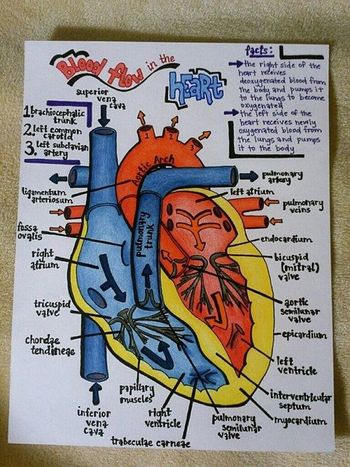 Blood flow in the
heart
facts:
the right side of the
heart receives
deoxygenated blood from
the body and pumps it
to the lungs to become
oxygenated
the left side of the
heart receives newly
oxygenated blood from
the lungs and pumps
it to the body
superior
vena
cava
1. brachiocephalic
trunk
2. left common
carotid
3. left subclavian
artery
Aortic Arch
pulmonary
trunk
ligamentum
arteriosum
fossa
ovalis
right
atrium
tricuspid
valve
chordae
tendineae
inferior
vena
cava
papillary
muscles
right
ventricle
trabeculae carneae
pulmonary
artery
left atrium
pulmonary
veins
endocardium
bicuspid
(mitral)
valve
aortic
semilunar
valve
epicardium
left
ventricle
interventricular
septum
myocardium
pulmonary
semilunar
valve